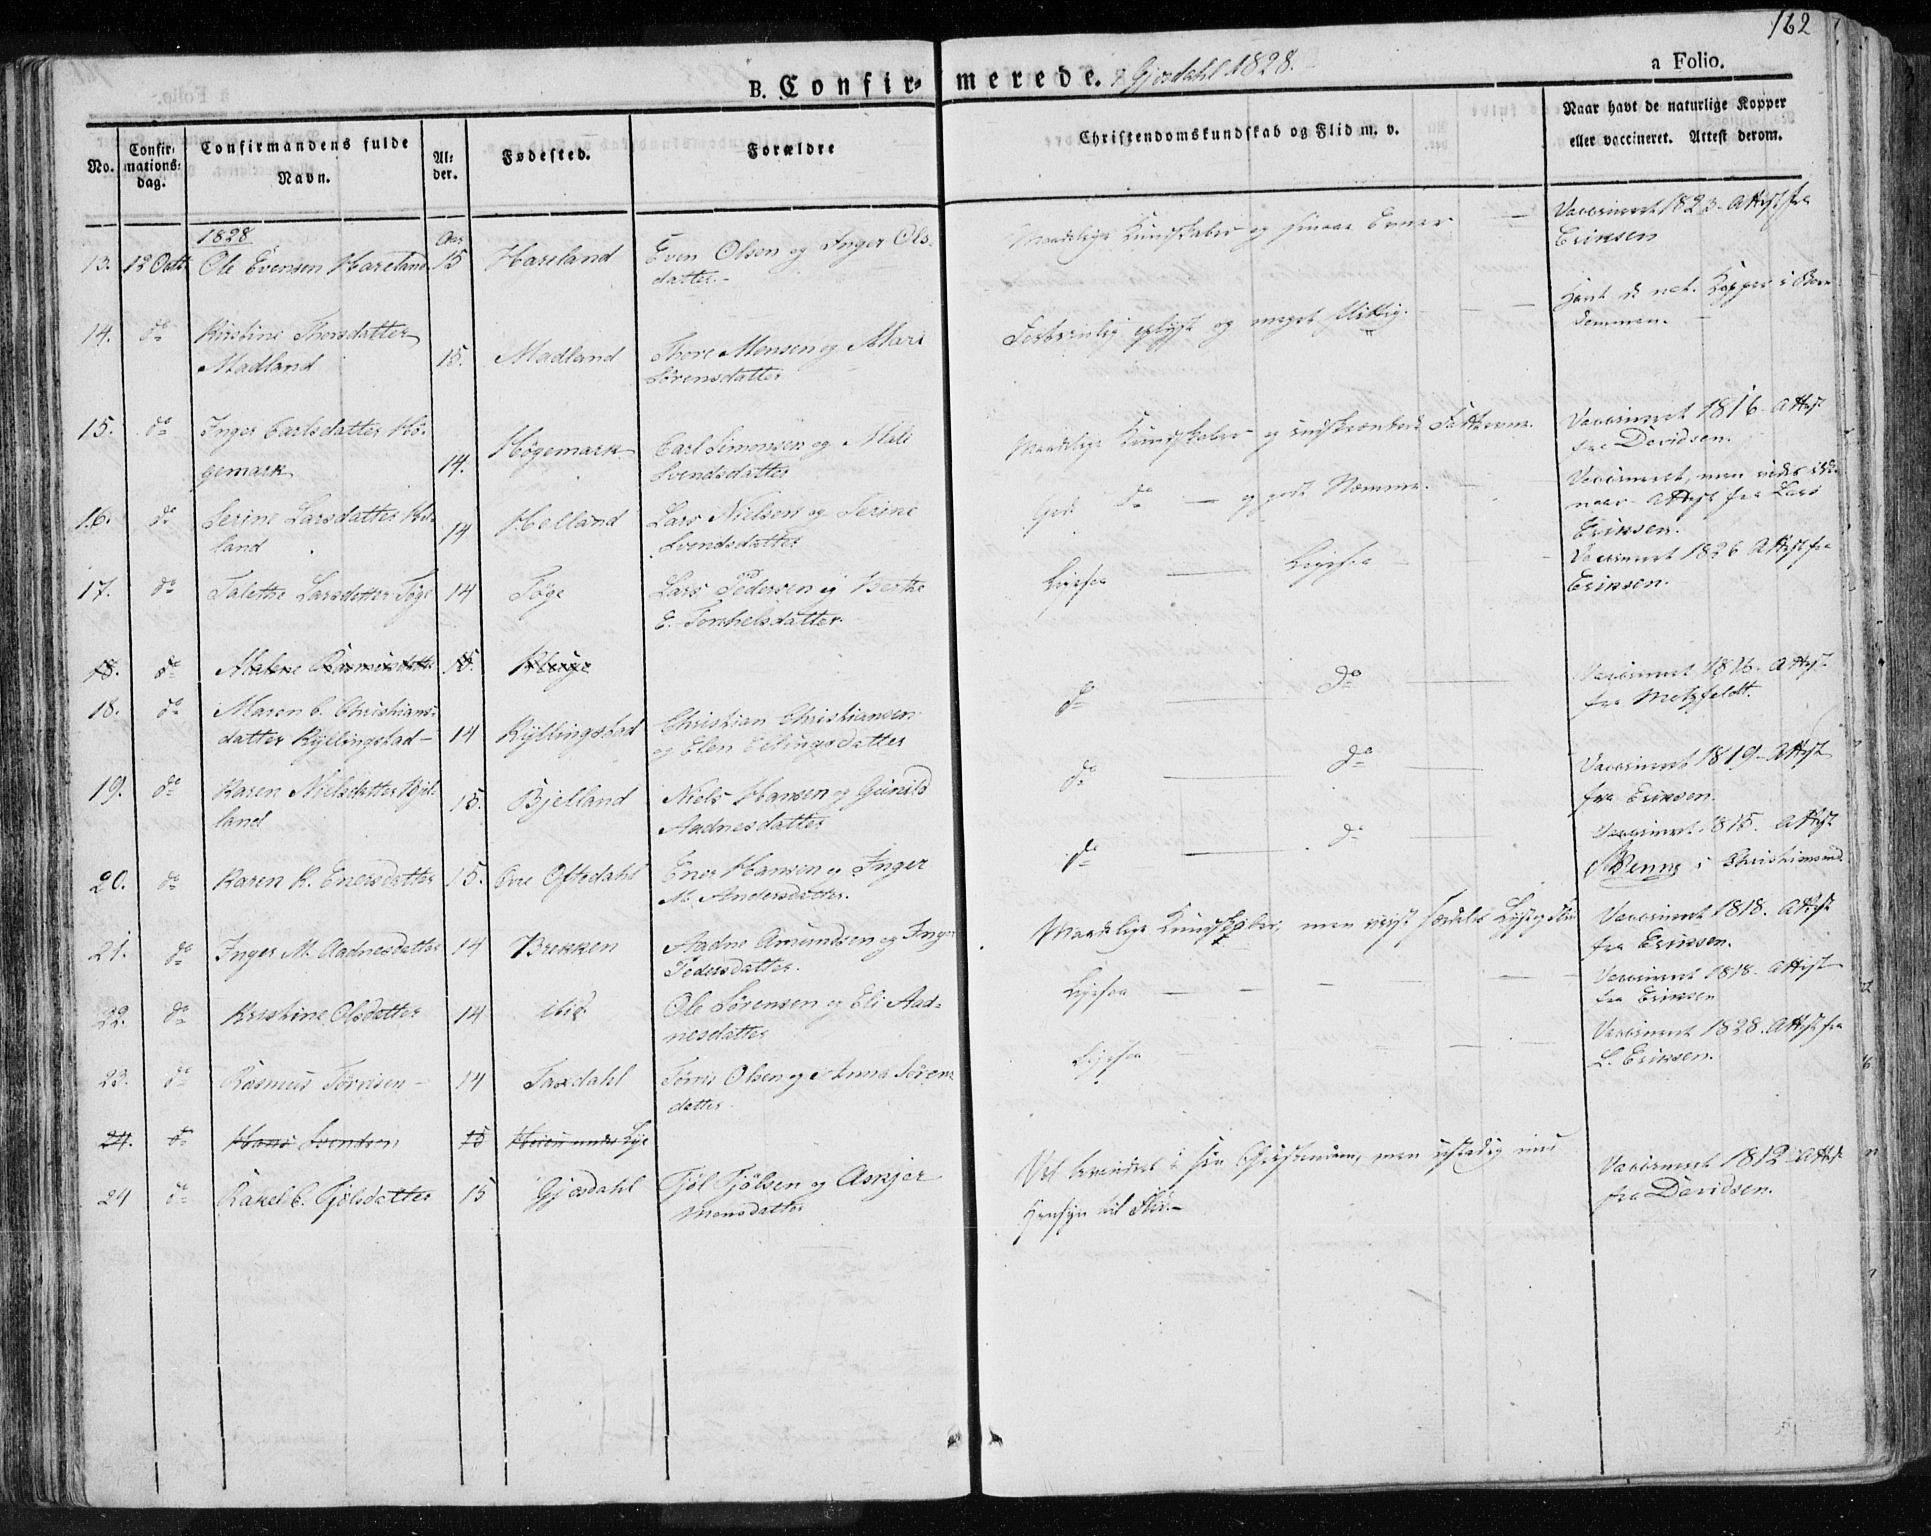 162
B. Confir- merede. i Gjesdahl 1828.
a Folio.
No.
Confir-
mations-
dag.
Confirmandens fulde
Navn.
Al-
der.
Fødested.
Forældre
Christendomskundskab og Flid m. v.
Naar havt de naturlige Kopper
eller vaccineret. Attest derom.
1828
Aar
13. 12 Octbr Ole Evensen Hareland 15 Hareland Even Olsen og Inger Ols-
datter.
Maadelige Kundskaber og Evner
Vaccineret 1823. Attest fra
Eriksen
14. do Kirstine Thoresdatter
Madland 15. Madland Thore Monsen og Mari
Sørensdatter
oplyst og meget flittig.
Havt de nat. Kopper i Barn-
dommen.
15. do Inger Carlsdatter Hø-
gemark 14. Høgemark Carl Simonsen og Mali
Svendsdatter
Maadelige Kundskaber og indskrænkede
Vaccineret 1816. Attest
fra Davidsen.
16. do Serine Larsdatter Hel-
land 14 Helland Lars Nielsen og Serine
Svendsdatter
God do og godt Nemme.
Vaccineret, men vides ikke
naar. Attest fra Lars
Eriksen.
17. do Talette Larsdatter Tøge 14 Tøge Lars Pedersen og Berthe
E. Torkelsdatter.
Ligesaa Ligesaa
Vaccineret 1826 Attest fra
Eriksen.
18. do Malene Rasmusdatter 15.
18. do Maren C. Christians-
datter Kyllingstad 14 Kyllingstad Christian Christiansen
og Elen Ellingsdatter
do do
Vaccineret 1816. Attest
fra Metzfeldt.
19. do Karen Nielsdatter Bjel-
land 15. Bjelland Niels Hansen og Gunild
Aadnesdatter
do do
Vaccineret 1819. Attest
fra Eriksen.
20. do Karen K. Enersdatter 15. Øvre Oftedahl Ener Hansen og Inger
M. Andersdatter.
do do
Vaccineret 1815. Attest
i Christiansand.
21. do Inger M. Aadnesdatter 14 Brekken Aadne Amundsen og Inger
Pedersdatter.
Maadelige Kundskaber, men
Vaccineret 1818. Attest
fra Eriksen.
22. do Kristine Olsdatter 14 ibid Ole Sørensen og Eli Aad-
nesdatter
Ligesaa
Vaccineret 1818. Attest
fra Eriksen
23. do Rasmus Tørrisen 14 Tørris Olsen og Anna Sørens-
datter
Ligesaa
Vaccineret 1828. Attest fra
L. Eriksen.
24. do Hans Svendsen 15 under Lye
24 do Rakel C. Tjølsdatter 15 Gjesdahl Tjøl Tjølsen og Asgjer
Monsdatter
Vel bevandret i sin Christendom, men ustadig med
Hensyn til Flid.
Vaccineret 1812 Attest
fra Davidsen.